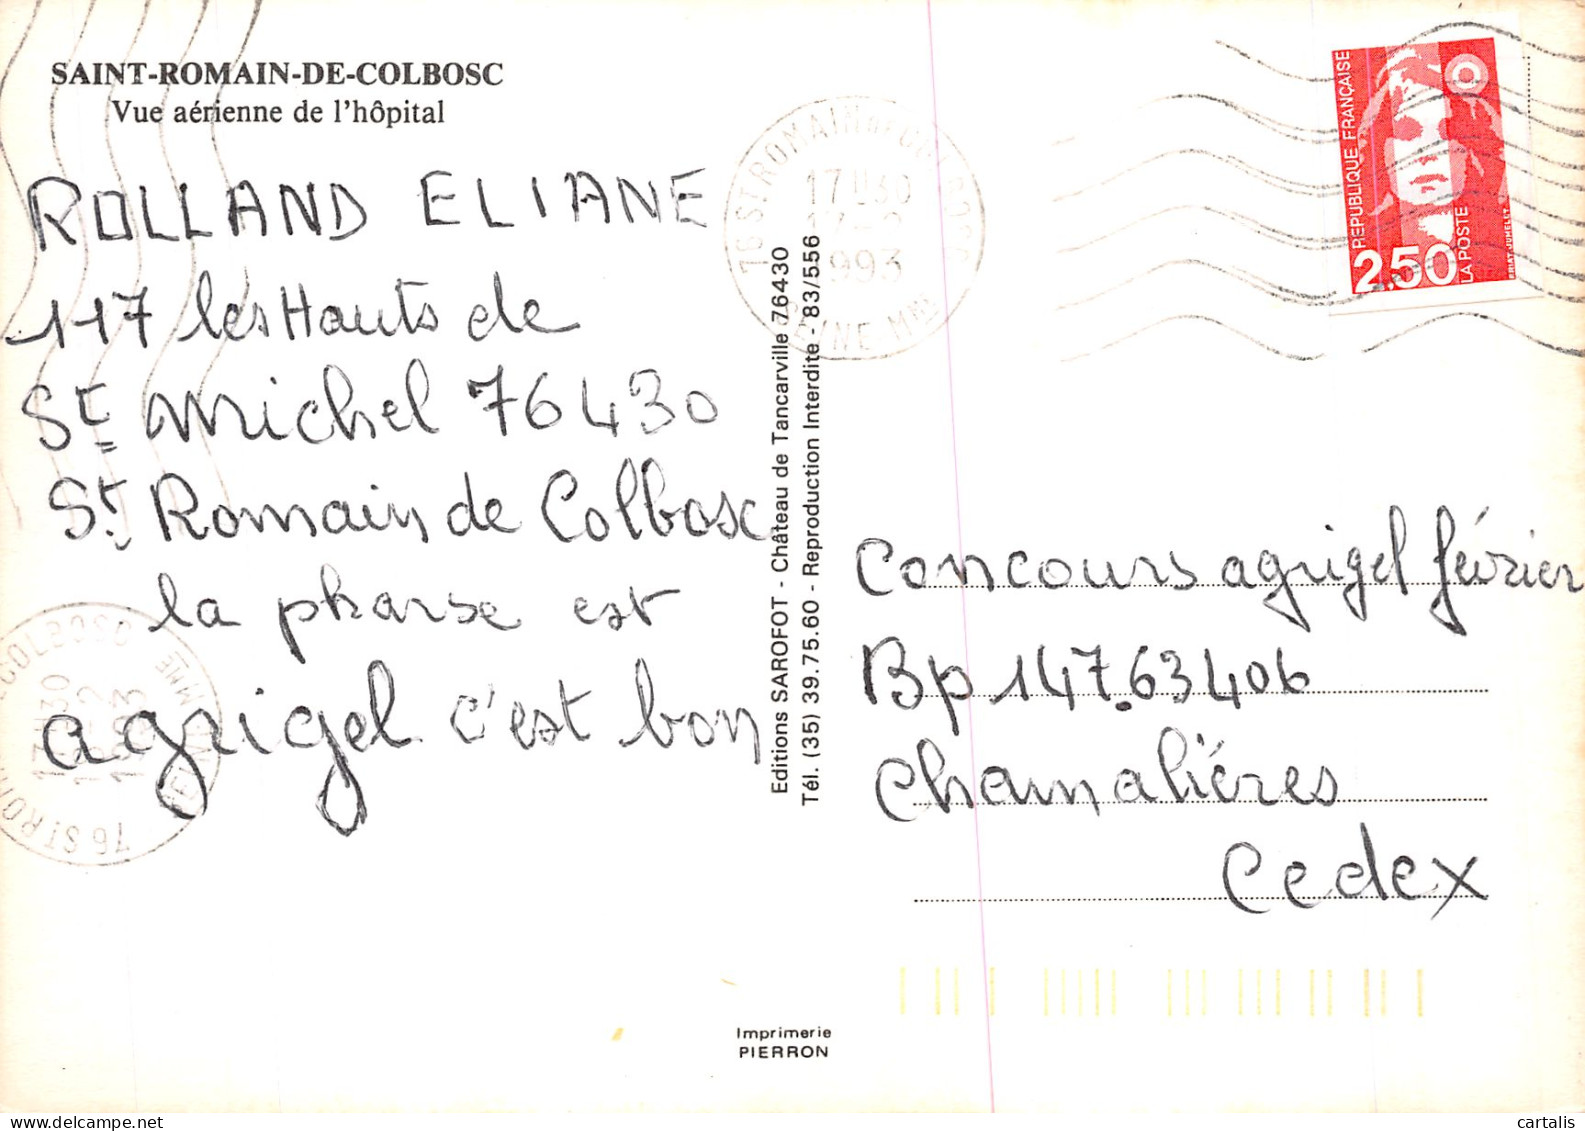 SAINT-ROMAIN-DE-COLBOSC
Vue aérienne de l'hôpital
ROLLAND ELIANE
117 les Hauts de
St michel 76430
St Romain de Colbosc
la pharse est
agrigel c'est bon
Editions SAROFOT - Château de Tancarville 76430
Tél. (35) 39.75.60 - Reproduction Interdite - 83/556
76 ST ROMAIN DE COLBOSC
17H30
1993
SEINE MME
REPUBLIQUE FRANÇAISE
2,50
LA POSTE
BRIAT JUMELET
Concours agrigel février
Bp 147.63406
Chamaliéres
Cedex
Imprimerie
PIERRON
www.delcampe.net
cartalis